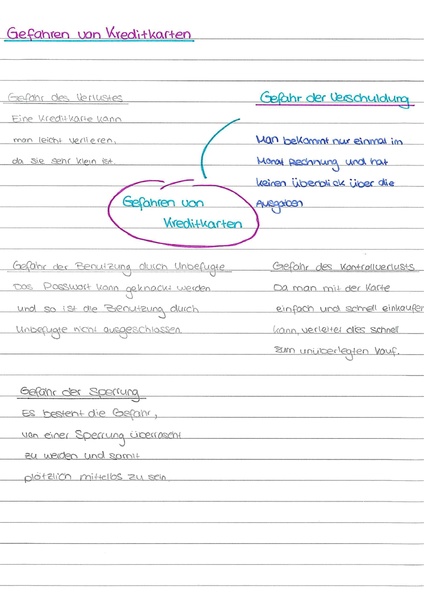 Gefahren von Kreditkarten
Gefahr des Verlustes
Eine Kreditkarte kann
man leicht verlieren,
da sie sehr klein ist.
Gefahr der Verschuldung
Man bekommt nur einmal im
Monat Rechnung und hat
keinen Überblick über die
Ausgaben
Gefahren von
Kreditkarten
Gefahr der Benutzung durch Unbefugte
Das Passwort kann geknackt werden
und so ist die Benutzung durch
Unbefugte nicht ausgeschlossen
Gefahr des Kontrollverlusts
Da man mit der Karte
einfach und schnell einkaufen
kann, verleitet dies schnell
zum unüberlegten Kauf.
Gefahr der Sperrung
Es besteht die Gefahr,
von einer Sperrung überrascht
zu werden und somit
plötzlich mittellos zu sein.